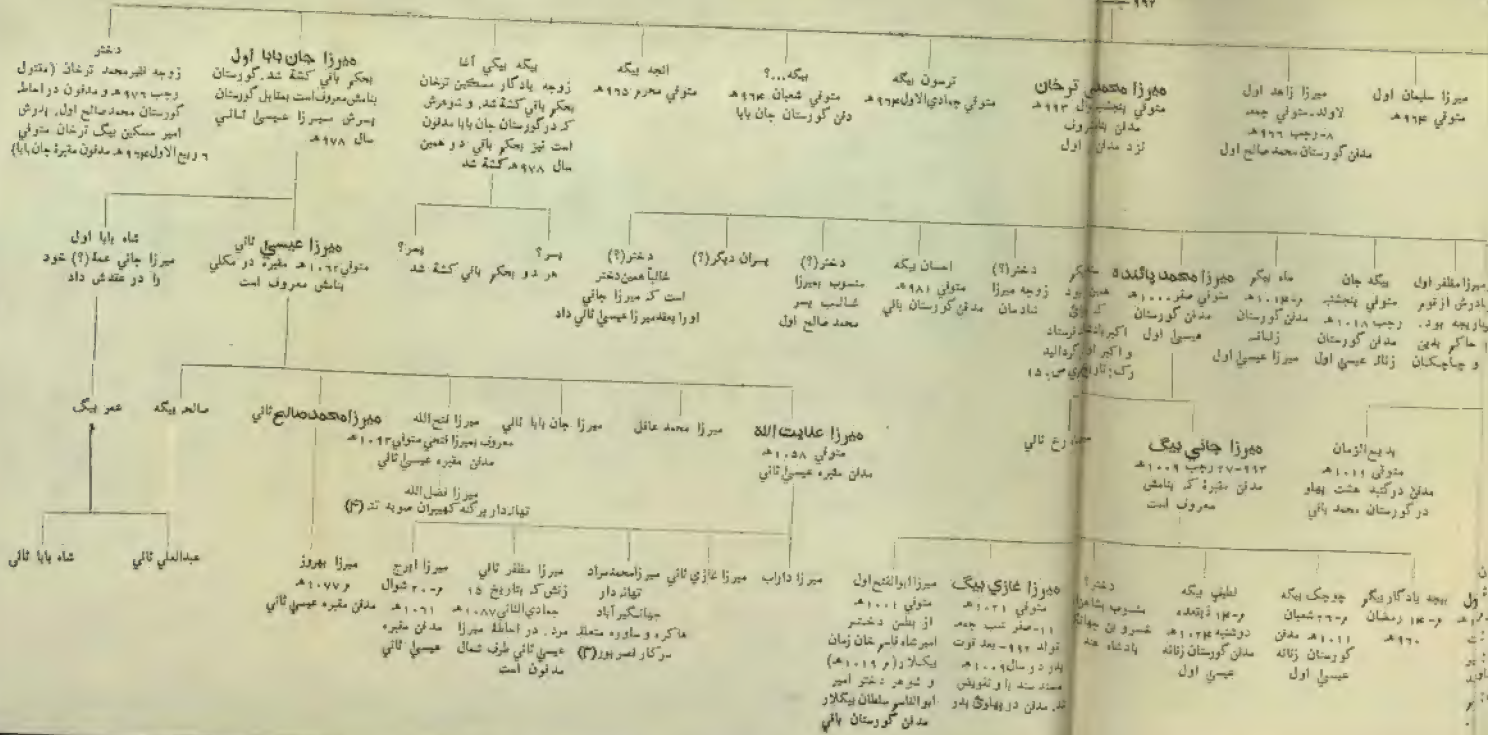 ۹۹۲
میرزا سلیمان اول
متوفي ۹۶۴ھ
میرزا زاهد اول
لاولد۔متوفي جمعہ
۸-رجب ۹۶۶ھ
مدفن گورستان محمد صالح اول
میرزا محمد ترخان
متوفي پنجشنبہ اول ۹۹۳ھ
مدفن بنامش معروف
نزد مدفن اول
ترسون بیگہ
متوفي جمادي‌الاول ۹۶۴ھ
بیگہ...؟
متوفي شعبان ۹۶۴ھ
دفن گورستان جان بابا
انجہ بیگہ
متوفي محرم ۹۶۵ھ
بیگہ بیگي آغا
زوجہ یادگار مسکین ترخان
بحکم باقي کشتہ شد. و شوهرش
کہ در گورستان جان بابا مدفون
است نیز بحکم باقي در همین
سال ۹۷۸ھ کشتہ شد
میرزا جان بابا اول
بحکم باقي کشتہ شد. گورستان
بنامش معروف است بمقابل گورستان
پسرش میرزا عیسیٰ ثاني
سال ۹۷۸ھ
دختر
زوجہ فقیر محمد ترخان (مقتول
رجب ۹۷۶ھ و مدفون در احاطہ
گورستان محمد صالح اول. پدرش
امیر مسکین بیگ ترخان متوفي
۶ ربیع الاول ۹۶۴ھ مدفون مقبرۂ جان بابا)
میرزا مظفر اول
مادرش از قوم
جاریجہ بود.
حاکم بدین
و چاچکان
بیگہ جان
متوفي پنجشنبہ
رجب ۱۰۱۸ھ
مدفن گورستان
زنانہ عیسیٰ اول
ماہ بیگم
م-۱۰۱۴ھ
مدفن گورستان
زنانہ
میرزا عیسیٰ اول
میرزا محمد پائندہ
متوفي صفر ۱۰۰۰ھ
مدفن گورستان
عیسیٰ اول
همین بود
اکبر بادشاہ فرستاد
و اکبر او گردانید
رک: تاریخ ص: ۱۵
دختر(؟)
زوجہ میرزا
شادمان
احسان بیگہ
متوفي ۹۸۱ھ
مدفن گورستان باقي
دختر(؟)
منسوب بمیرزا
غالب پسر
محمد صالح اول
پسران دیگر(؟)
دختر(؟)
غالباً همین دختر
است کہ میرزا جاني
او را بعقد میرزا عیسیٰ ثاني داد
پسر؟
پسر؟
هر دو بحکم باقي کشتہ شد
میرزا عیسیٰ ثاني
متوفي ۱۰۶۲ھ مقبرۂ در مکلي
بنامش معروف است
شاہ بابا اول
میرزا جاني عمۂ(؟) خود
را در عقدش داد
بدیع‌الزمان
متوفي ۱۰۱۱ھ
مدفن در گنبد هشت پهلو
در گورستان محمد باقي
میرزا جاني بیگ
۹۹۳-۲۷ رجب ۱۰۰۹ھ
مدفن مقبرۂ کہ بنامش
معروف است
ثاني
میرزا عنایت اللہ
متوفي ۱۰۵۸ھ
مدفن مقبرہ عیسیٰ ثاني
میرزا محمد عاقل
میرزا جان بابا ثاني
میرزا فتح‌اللہ
معروف بمیرزا فتحي متوفي ۱۰۹۲ھ
مدفن مقبرہ عیسیٰ ثاني
میرزا فضل‌اللہ
تهاندار پرگنہ کهیبران صوبہ تتہ (۴)
میرزا محمد صالح ثاني
صالحہ بیگہ
عمر بیگ
بیچہ یادگار بیگم
م-۱۴ رمضان
۹۶۰ھ
چوچک بیگہ
م-۲۶ شعبان
۱۰۱۱ھ مدفن
گورستان زنانہ
عیسیٰ اول
لطیف بیگہ
م-۱۴ ذیقعدہ
دوشنبہ ۱۰۲۴ھ
مدفن گورستان زنانہ
عیسیٰ اول
دختر؟
منسوب بشاهزادہ
خسرو بن جهانگیر
بادشاہ هند
میرزا غازي بیگ
متوفي ۱۰۲۱ھ
۱۱-صفر شب جمعہ
تولد ۹۹۲-بعد فوت
پدر در سال ۱۰۰۹ھ
مسند سند با و تفویض
شد. مدفن در پهلوئ پدر
میرزا ابوالفتح اول
متوفي ۱۰۰۱ھ
از بطن دختر
امیر شاہ قاسم خان زمان
بیگلار (م ۱۰۱۹ھ)
و شوهر دختر امیر
ابوالقاسم سلطان بیگلار
مدفن گورستان باقي
میرزا داراب
میرزا غازي ثاني
میرزا محمد مراد
تهاندار
جهانگیر آباد
هاکرہ و ساورہ متعلقہ
سرکار نصرپور(۳)
میرزا مظفر ثاني
زنش کہ بتاریخ ۱۵
جمادي‌الثاني ۱۰۸۷ھ
مرد. در احاطۂ میرزا
عیسیٰ ثاني طرف شمال
مدفون است
میرزا ایرج
م-۲۰ شوال
۱۰۶۱ھ
مدفن مقبرہ
عیسیٰ ثاني
میرزا بهروز
م ۱۰۷۷ھ
مدفن مقبرہ عیسیٰ ثاني
عبدالعلي ثاني
شاہ بابا ثاني